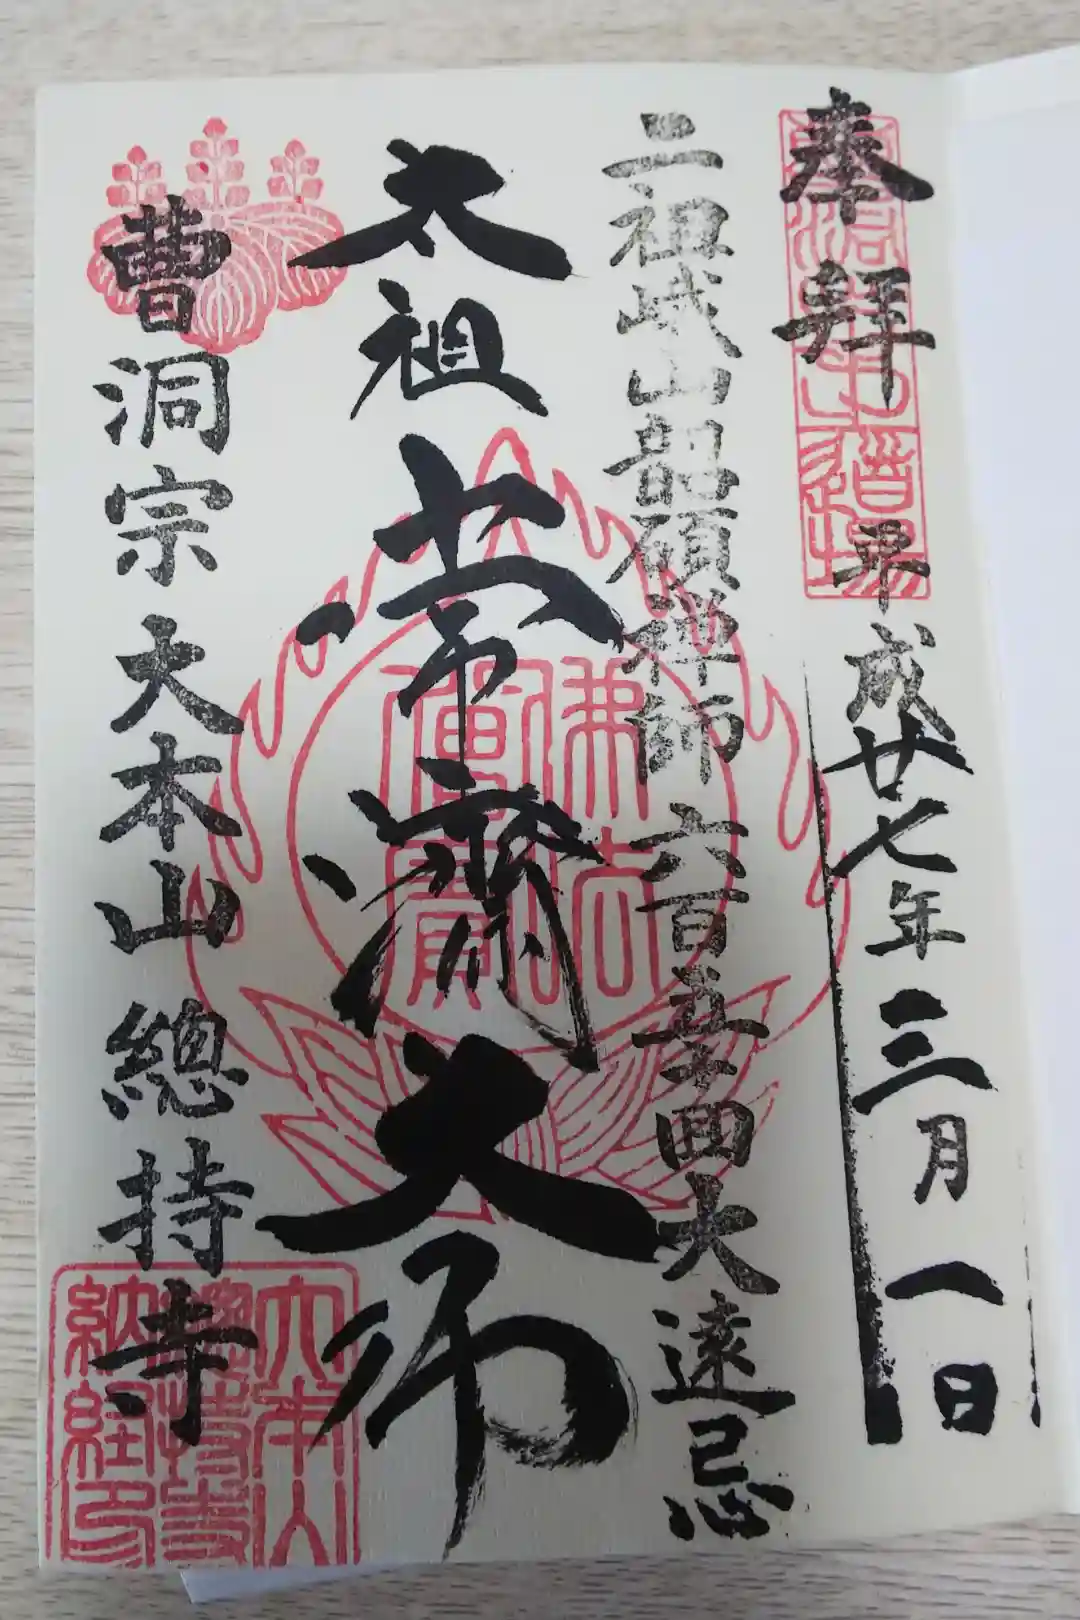 奉拝 平成廿七年三月一日
二祖峨山韶碩禅師 六百五十回大遠忌
太祖常濟大師
佛法
僧寶
曹洞宗 大本山 總持寺
大本山
總持寺
納經印